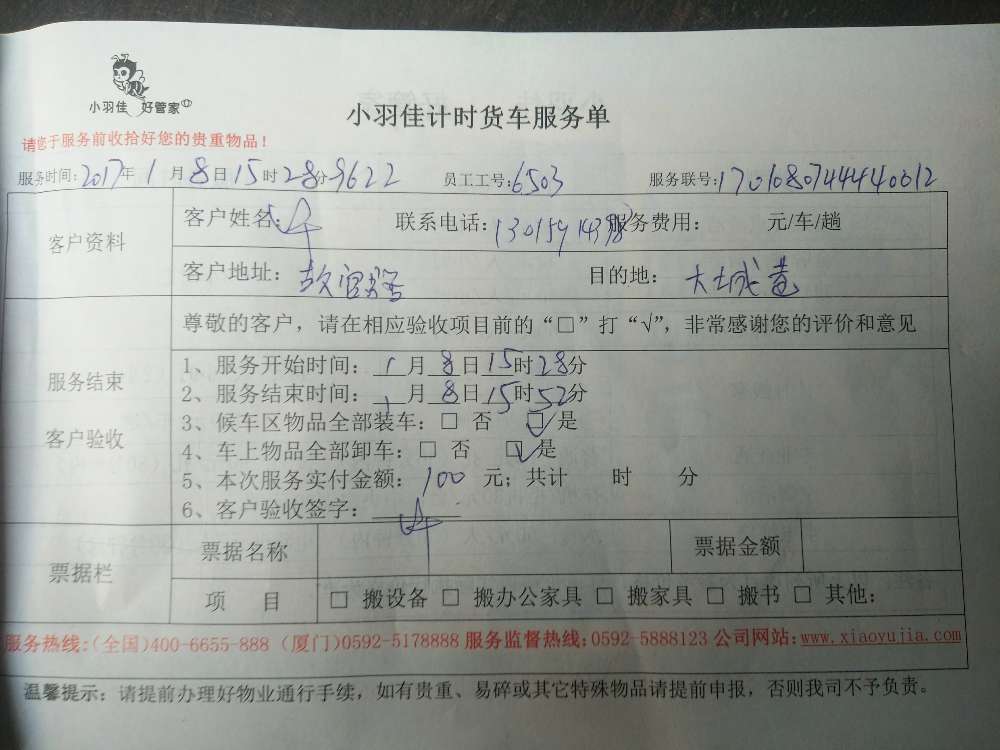 小羽佳 好管家
小羽佳计时货车服务单
请您于服务前收拾好您的贵重物品！
服务时间:2017年1月8日15时28分9622 员工工号:6503 服务联号:170108074444
客户资料
客户姓名: 联系电话: 服务费用: 元/车/趟
客户地址: 故宫路 目的地: 大城
服务结束
客户验收
尊敬的客户，请在相应验收项目前的“□”打“√”，非常感谢您的评价和意见
1、服务开始时间：1月8日15时28分
2、服务结束时间：1月8日15时52分
3、候车区物品全部装车：□ 否 ☑ 是
4、车上物品全部卸车：□ 否 ☑ 是
5、本次服务实付金额：100 元；共计 时 分
6、客户验收签字：
票据栏
票据名称 票据金额
项 目 □ 搬设备 □ 搬办公家具 □ 搬家具 □ 搬书 □ 其他:
服务热线:(全国)400-6655-888 (厦门)0592-5178888 服务监督热线:0592-5888123 公司网站:www.xiaoyujia.com
温馨提示：请提前办理好物业通行手续，如有贵重、易碎或其它特殊物品请提前申报，否则我司不予负责。